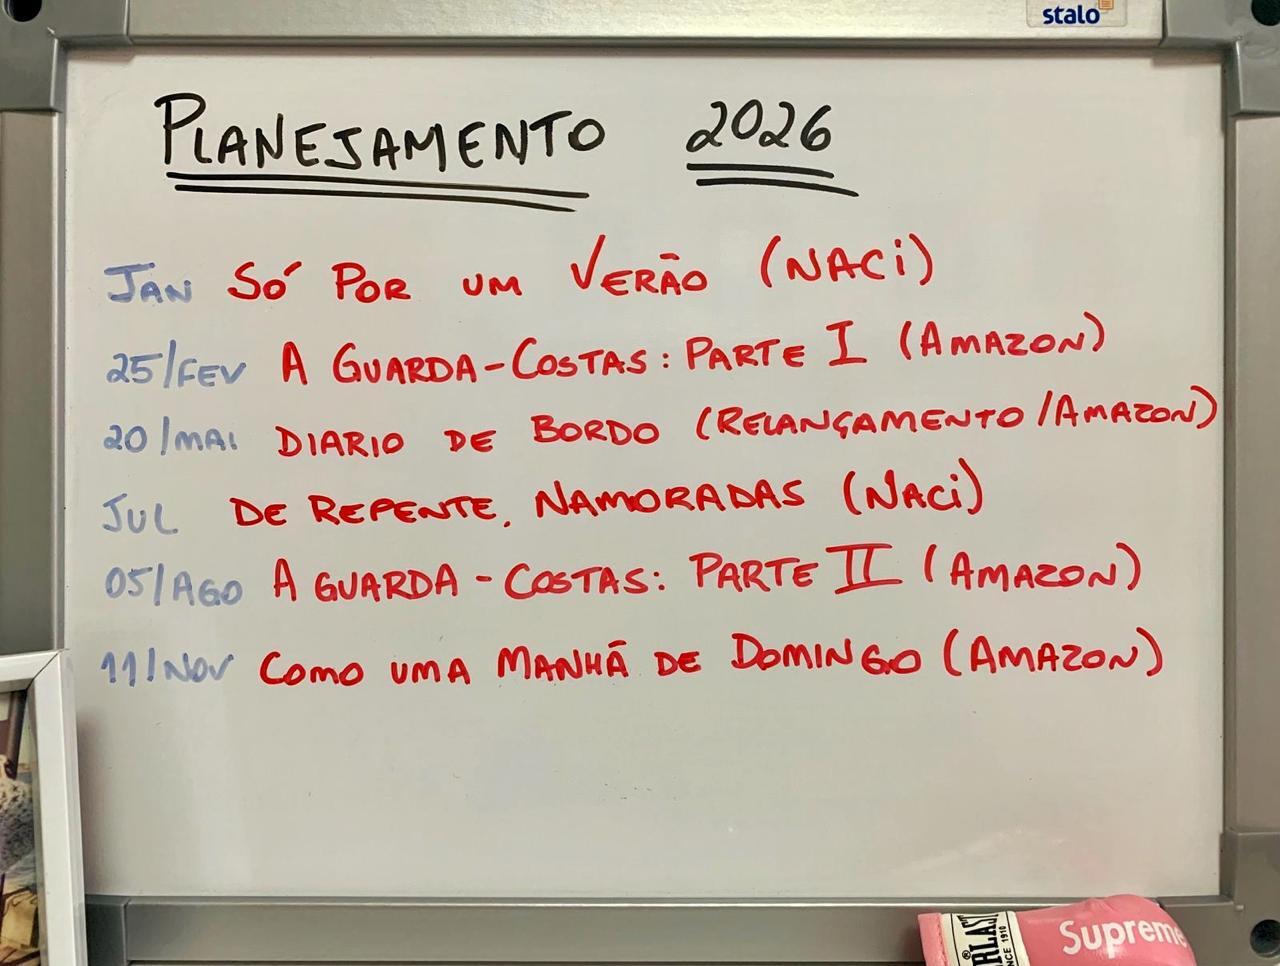 stalo
PLANEJAMENTO 2026
JAN SÓ POR UM VERÃO (NACI)
25/FEV A GUARDA-COSTAS: PARTE I (AMAZON)
20/MAI DIARIO DE BORDO (RELANÇAMENTO/AMAZON)
JUL DE REPENTE, NAMORADAS (NACI)
05/AGO A GUARDA-COSTAS: PARTE II (AMAZON)
11/NOV COMO UMA MANHÃ DE DOMINGO (AMAZON)
Supreme
1910